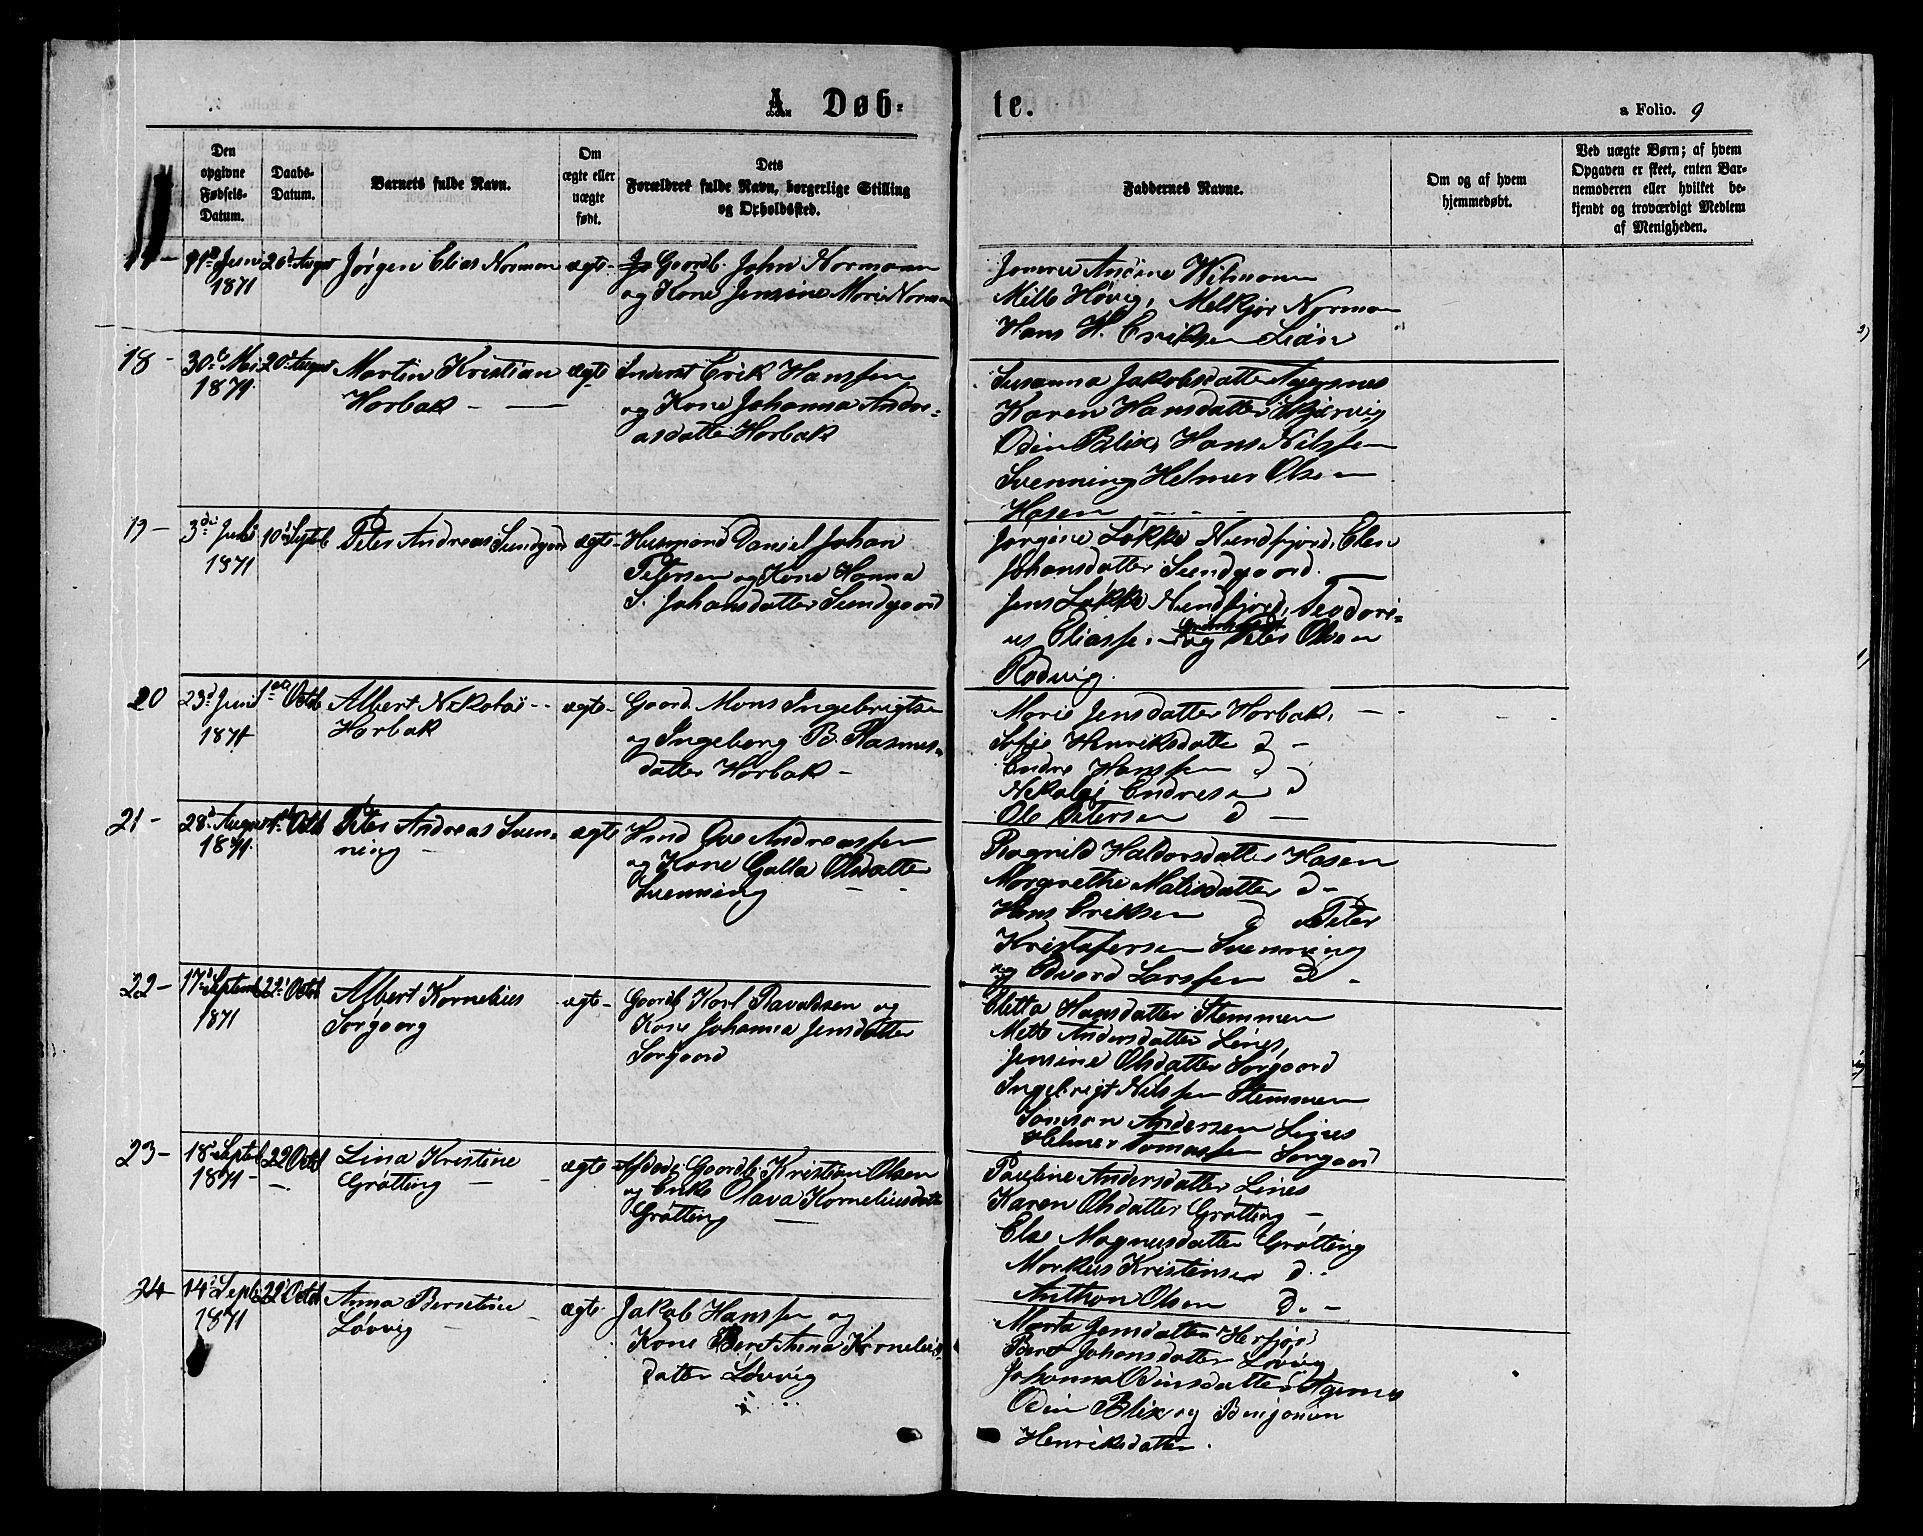 A. Døb-
te.
a Folio. 9
Den
opgivne
Fødsels-
Datum.
Daabs-
Datum.
Barnets fulde Navn.
Om
ægte eller
uægte
født.
Dets
Forældres fulde Navn, borgerlige Stilling
og Opholdssted.
Faddernes Navne.
Om og af hvem
hjemmedøbt.
Ved uægte Børn; af hvem
Opgaven er skeet, enten Bar-
nemoderen eller hvilket be-
kjendt og troværdigt Medlem
af Menigheden.
Juni
1871
20d August
Jørgen Elias Norman
ægte-
Gaardb. John Normann
og Kone Jensine Marie Norman
Andine Wilmann
Mette Høvig, Melkjor Norman
Hans H. Eriksen Lian
18-
30te Mai
1871
20d August
Martin Kristian
Horbak -
ægte
Inderst Erik Hanssen
og Kone Johanna Andre-
asdatter Horbak
Susanna Jakobsdatter
Karen Hansdatter Skjervig
Odin Blix, Hans Nilssen
Svenning Helmer Olsen
Hosen
19-
3de Juli
1871
10d Septb
Peter Andreas Sundgaard
ægte-
Husmand Daniel Johan
Petersen og Kone Hanna
S. Johansdatter Sundgaard
Jørgine Løkke Nundfjord, Elen
Johansdatter Sundgaard
Jens Løkke Nundfjord, Teodori-
us Eliassen og Peter Olsen
Rødvig.
20
23d Juni
1871
1ste Octb
Albert Nikolai
Horbak
ægte-
Gaard. Mons Ingebrigtsen
og Ingeborg B. Rasmus-
datter Horbak -
Marie Jensdatter Horbak,
Sofie Henriksdatter d -
Endre Hanssen d
Nikolai Endresen d
Ole Petersen d -
21-
28d August
1871.
1ste Octb
Peter Andreas Sven-
ning -
ægte
Hmd Ove Andreassen
og Kone Golla Olsdatter
Svenning
Ragnild Haldorsdatter Hosen
Margrethe Matisdatter d -
Hans Eriksen d Peter
Kristofersen Svenning
og Edvard Larssen d -
22-
17d Septemb
1871
22d Octb
Albert Kornelius
Sørgaarg
ægte-
Gaardb Karl Ravaldsen og
Kone Johanna Jensdatter
Sørgaard
Eletta Hansdatter Stemmen
Mette Andersdatter Lines,
Jensine Olsdatter Sørgaard
Ingebrigt Nilssen Stemmen
Andersen Lines
Helmer Tomassen Sørgaard
23-
18d Septb
1871-
22 Octb
Lina Kristine
Grøtting
ægte
Afdøde Gaardb. Kristian Olsen
og Enke Olava Korneliusdatter
Grøtting
Pauline Andersdatter Lines
Karen Olsdatter Grøtting -
Else Magnusdatter Grøtting
Markus Kristensen d. -
Anthon Olsen d. -
24-
14d Septb
1871
22d Octb
Anna Berntine
Løvvig
ægte
Jakob Hanssen og
Kone Berit Anna Kornelius-
datter Løvvig
Marta Jensdatter Herfjord
Johansdatter Løvvig
Johanna Odinsdatter Agernes
Odin Blix og Benjamin
Henriksdatter.